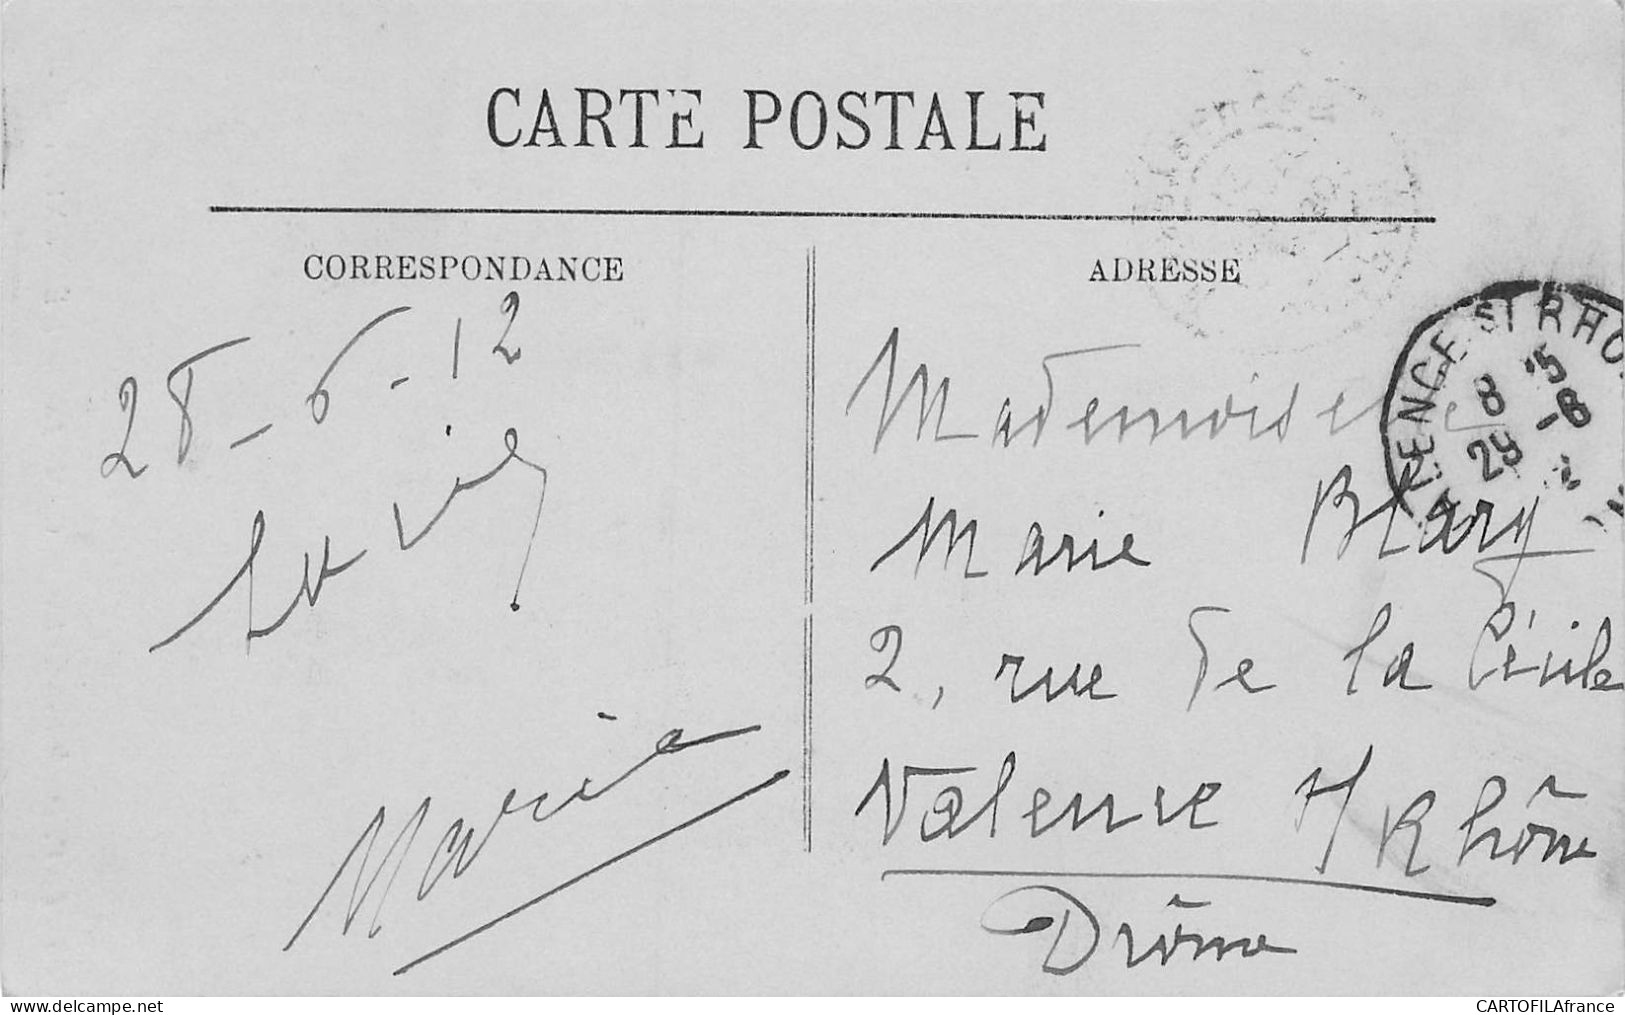 CARTE POSTALE
CORRESPONDANCE
28-6-12
Maria
ADRESSE
Mademoiselle
Marie Blary
2, rue de la Cécile
Valence s/Rhône
Drôme
VALENCE S/ RHO
8 15
29 -6
www.delcampe.net
CARTOFILAfrance